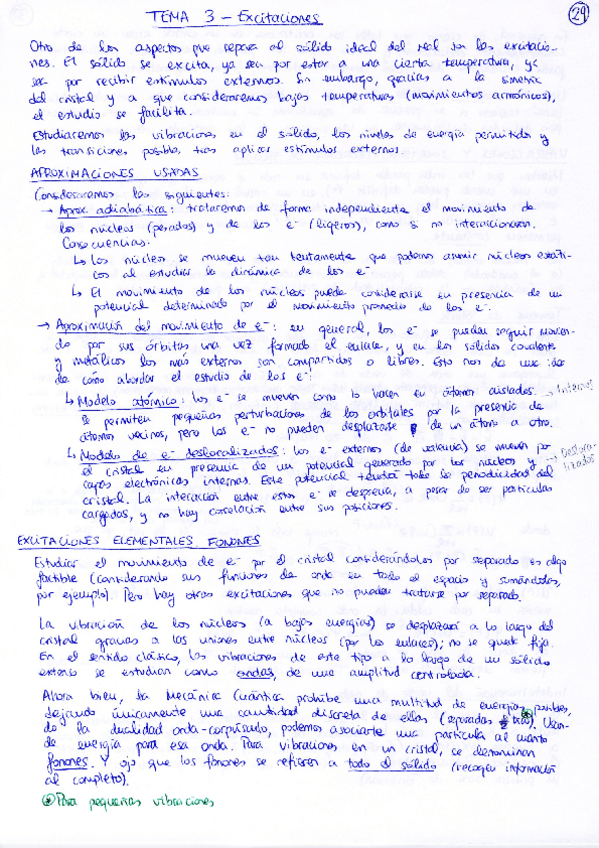 TEMA 3 – Excitaciones
29
Otro de los aspectos que separa al sólido ideal del real son las excitacio-
nes. El sólido se excita, ya sea por estar a una cierta temperatura, ya
sea por recibir estímulos externos. Sin embargo, gracias a la simetría
del cristal y a que consideraremos bajas temperaturas (movimientos armónicos),
el estudio se facilita.
Estudiaremos las vibraciones en el sólido, los niveles de energía permitidos y
las transiciones posibles, tras aplicar estímulos externos.
APROXIMACIONES USADAS
Consideraremos las siguientes:
→ Aprox. adiabática: trataremos de forma independiente el movimiento de
los núcleos (pesados) y de los e⁻ (ligeros), como si no interaccionaran.
Consecuencias:
↳ Los núcleos se mueven tan lentamente que podemos asumir núcleos estáti-
cos al estudiar la dinámica de los e⁻
↳ El movimiento de los núcleos puede considerarse en presencia de un
potencial determinado por el movimiento promedio de los e⁻.
→ Aproximación del movimiento de e⁻: en general, los e⁻ se pueden seguir movien-
do por sus órbitas una vez formado el enlace, y en los sólidos covalentes
y metálicos los más externos son compartidos o libres. Esto nos da una idea
de cómo abordar el estudio de los e⁻:
↳ Modelo atómico: los e⁻ se mueven como lo hacen en átomos aislados. → Internos
Se permiten pequeñas perturbaciones de los orbitales por la presencia de
átomos vecinos, pero los e⁻ no pueden desplazarse de un átomo a otro.
↳ Modelo de e⁻ deslocalizados: los e⁻ externos (de valencia) se mueven por
el cristal en presencia de un potencial generado por los núcleos y → Desloca-
capas electrónicas internas. Este potencial tendrá toda la periodicidad del lizados
cristal. La interacción entre estos e⁻ se desprecia, a pesar de ser partículas
cargadas, y no hay correlación entre sus posiciones.
EXCITACIONES ELEMENTALES. FONONES
Estudiar el movimiento de e⁻ por el cristal considerándolos por separado es algo
factible (considerando sus funciones de onda en todo el espacio y sumándolos,
por ejemplo). Pero hay otras excitaciones que no pueden tratarse por separado.
La vibración de los núcleos (a bajas energías) se desplazará a lo largo del
cristal gracias a las uniones entre núcleos (por los enlaces); no se queda fija.
En el sentido clásico, las vibraciones de este tipo a lo largo de un sólido
extenso se estudian como ondas, de una amplitud controlada.
Ahora bien, la Mecánica Cuántica prohíbe una multitud de energías posibles,
dejando únicamente una cantidad discreta de ellas (separadas ħω). Usan-
do la dualidad onda-corpúsculo, podemos asociarle una partícula al cuanto
de energía para esa onda. Para vibraciones en un cristal, se denominan
fonones. Y ojo que los fonones se refieren a todo el sólido (recogen información
al completo).
Para pequeñas vibraciones